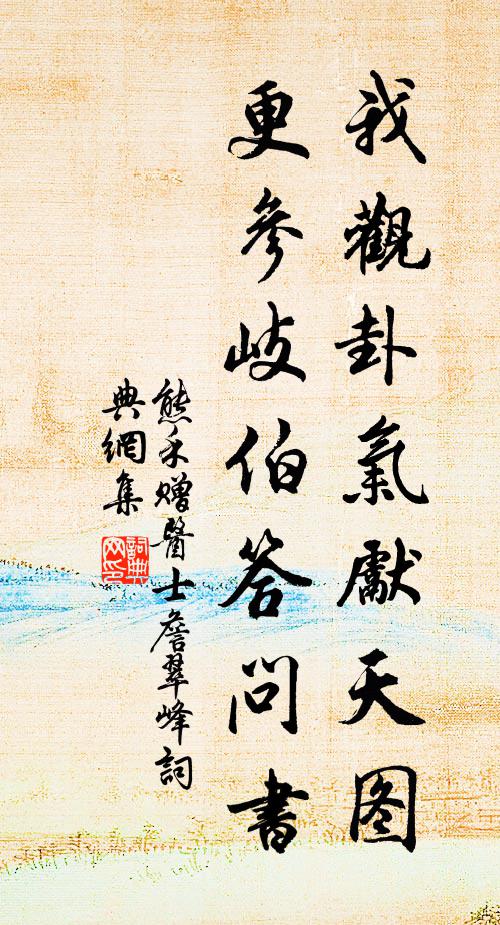 我觀卦氣獻天图
更參岐伯答問書
熊禾贈醫士詹翠峰詞
典網集
詞典网印